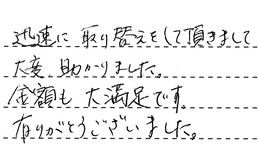 迅速に取り替えをして頂きまして
大変助かりました。
金額も大満足です。
有りがとうございました。